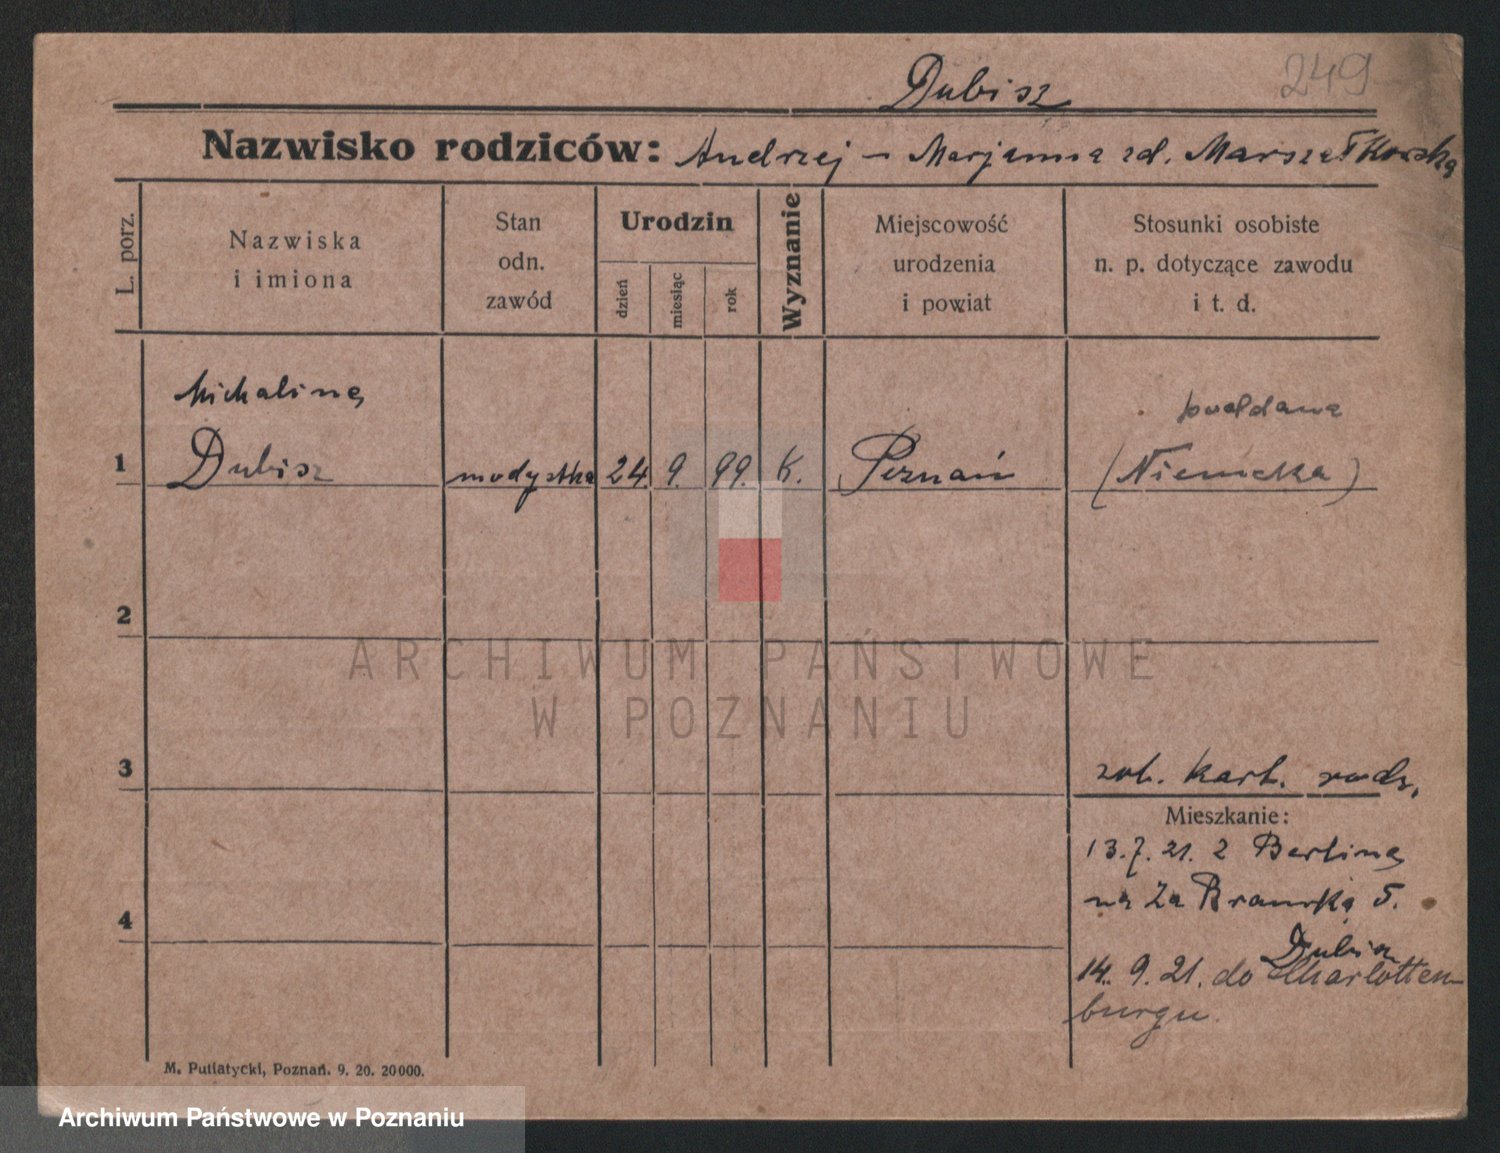 249
Dubisz
Nazwisko rodziców: Andrzej – Marjanna zd. Marszałkowska
L. porz.
Nazwiska
i imiona
Stan
odn.
zawód
Urodzin
dzień
miesiąc
rok
Wyznanie
Miejscowość
urodzenia
i powiat
Stosunki osobiste
n. p. dotyczące zawodu
i t. d.
Michalina
poddana
1 Dubisz modystka 24. 9. 99. K. Poznań (Niemcka)
2
3
zob. kart. rodz.
Mieszkanie:
13.7.21. z Berlina
na Za Bramką 5.
4
Dubisz
14. 9. 21. do Charlotten-
burgu.
M. Putiatycki, Poznań. 9. 20. 20000.
ARCHIWUM PAŃSTWOWE
W POZNANIU
Archiwum Państwowe w Poznaniu